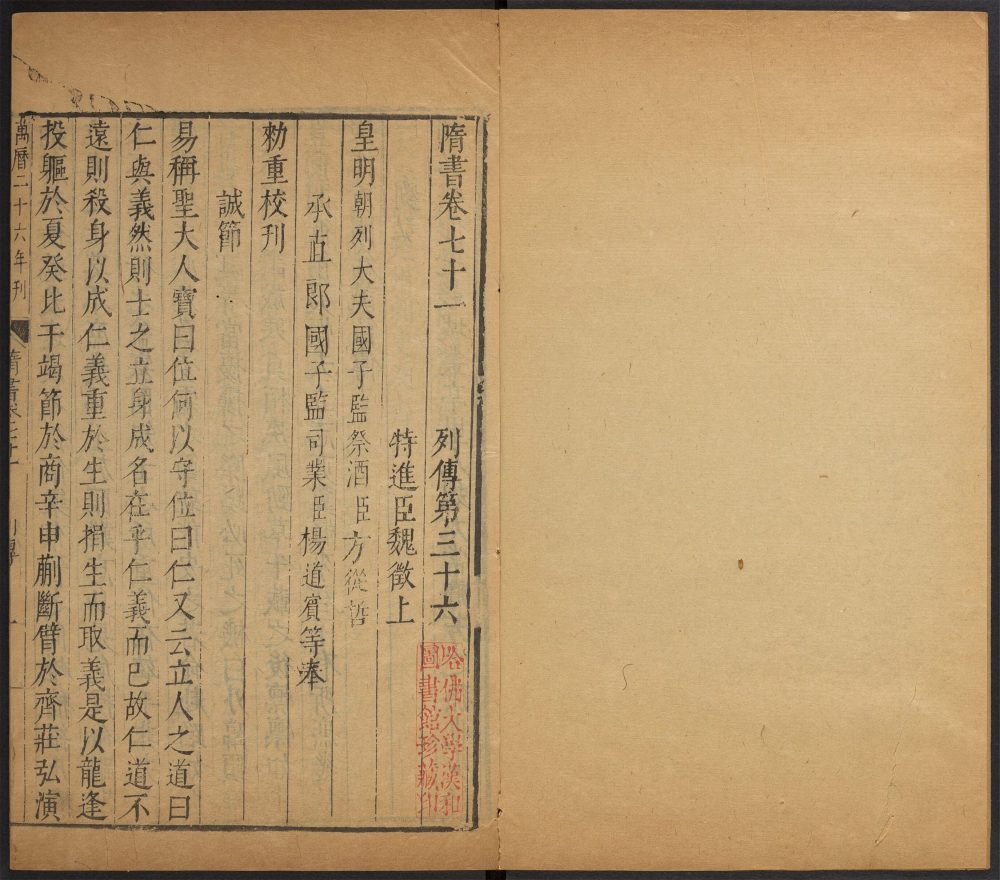 隋書卷七十一 列傳第三十六
特進臣魏徵上
皇明朝列大夫國子監祭酒臣方從哲
承直郎國子監司業臣楊道賓等奉
勑重校刊
誠節
易稱聖大人寶曰位何以守位曰仁又云立人之道曰
仁與義然則士之立身成名在乎仁義而已故仁道不
遠則殺身以成仁義重於生則捐生而取義是以龍逢
投軀於夏癸比干竭節於商辛申蒯斷臂於齊莊弘演
萬曆二十六年刊
隋書卷七十一 列傳 一
哈佛大學漢和
圖書館珍藏印